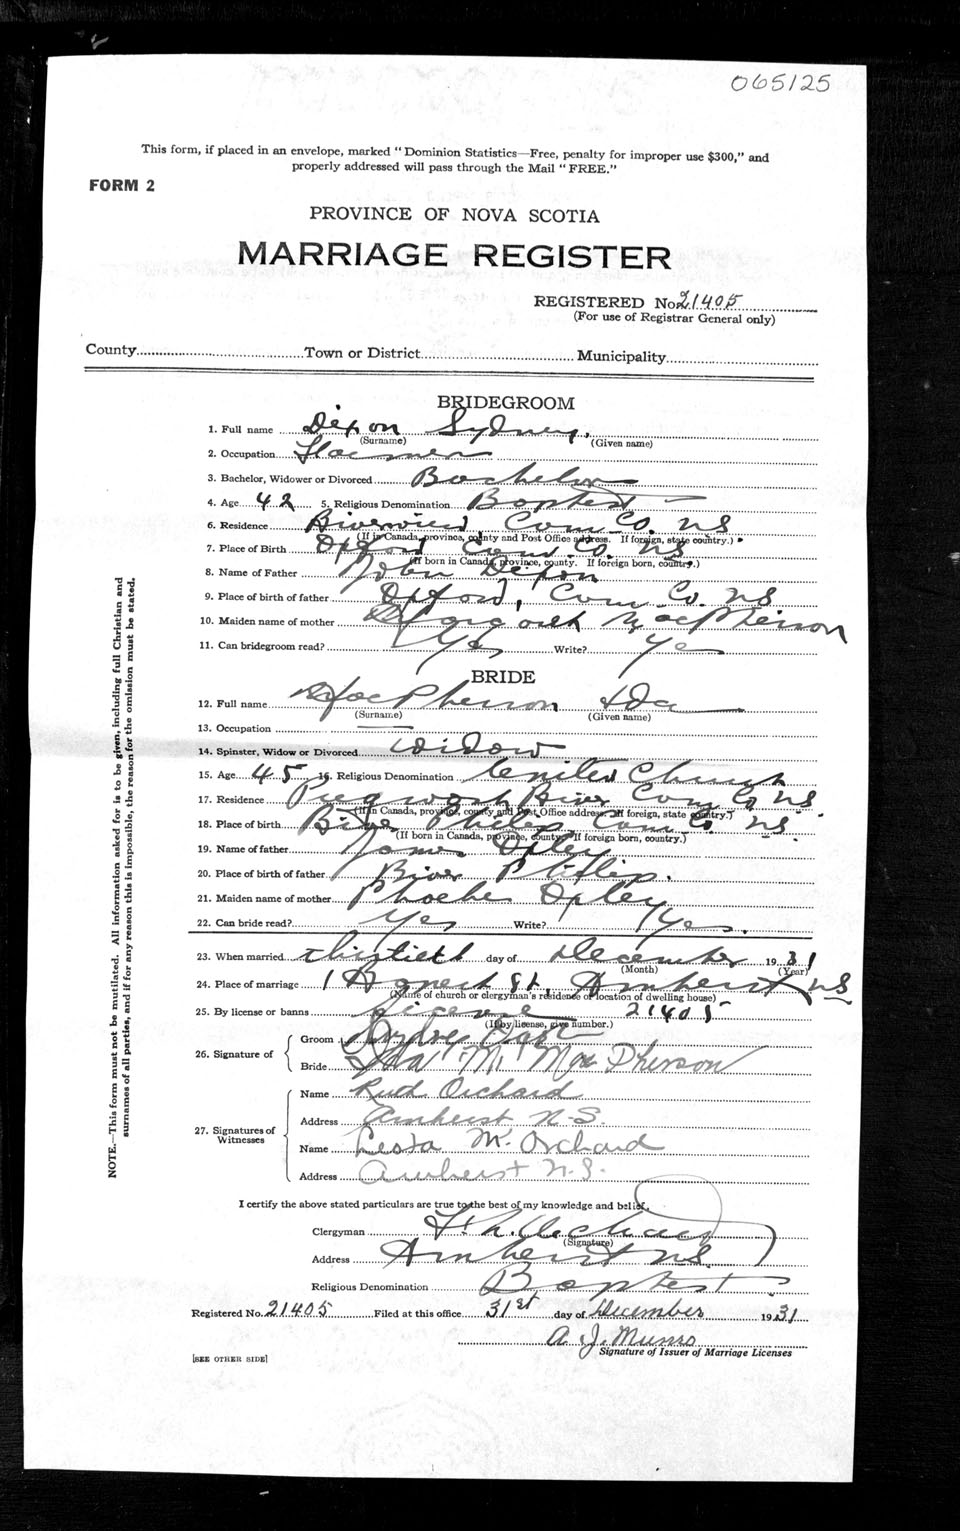 065125
This form, if placed in an envelope, marked "Dominion Statistics—Free, penalty for improper use $300," and
properly addressed will pass through the Mail "FREE."
FORM 2
PROVINCE OF NOVA SCOTIA
MARRIAGE REGISTER
REGISTERED No. 21405
(For use of Registrar General only)
County Town or District Municipality
BRIDEGROOM
1. Full name Dixon Sydney
(Surname) (Given name)
2. Occupation
3. Bachelor, Widower or Divorced Bachelor
4. Age 42 5. Religious Denomination Baptist
6. Residence Riverview Cum. Co. NS
(If in Canada, province, county and Post Office address. If foreign, state country.)
7. Place of Birth Oxford Cum. Co. NS
(If born in Canada, province, county. If foreign born, country.)
8. Name of Father John Dixon
9. Place of birth of father Oxford, Cum. Co. NS
10. Maiden name of mother Margaret MacPherson
11. Can bridegroom read? Yes Write? Yes
BRIDE
12. Full name MacPherson Ida
(Surname) (Given name)
13. Occupation
14. Spinster, Widow or Divorced Widow
15. Age 45 16. Religious Denomination United Church
17. Residence Pugwash River Cum Co NS
(If in Canada, province, county and Post Office address. If foreign, state country.)
18. Place of birth River Philip Cum Co NS.
(If born in Canada, province, county. If foreign born, country.)
19. Name of father James Opley
20. Place of birth of father River Philip.
21. Maiden name of mother Phoebe Opley
22. Can bride read? Yes Write? Yes.
23. When married Thirtieth day of December 1931
(Month) (Year)
24. Place of marriage 1 Agnew St, Amherst, NS
(Name of church or clergyman's residence or location of dwelling house)
25. By license or banns License 21405
(If by license, give number.)
26. Signature of
Groom
Bride Ida M. MacPherson
27. Signatures of Witnesses
Name Ruth Orchard
Address Amherst N.S.
Name M. Orchard
Address Amherst N.S.
I certify the above stated particulars are true to the best of my knowledge and belief.
Clergyman Orchard
(Signature)
Address Amherst NS
Religious Denomination Baptist
Registered No. 21405 Filed at this office 31st day of December 1931
A. J. Munro
Signature of Issuer of Marriage Licenses
[SEE OTHER SIDE]
NOTE.—This form must not be mutilated. All information asked for is to be given, including full Christian and
surnames of all parties, and if for any reason this is impossible, the reason for the omission must be stated.